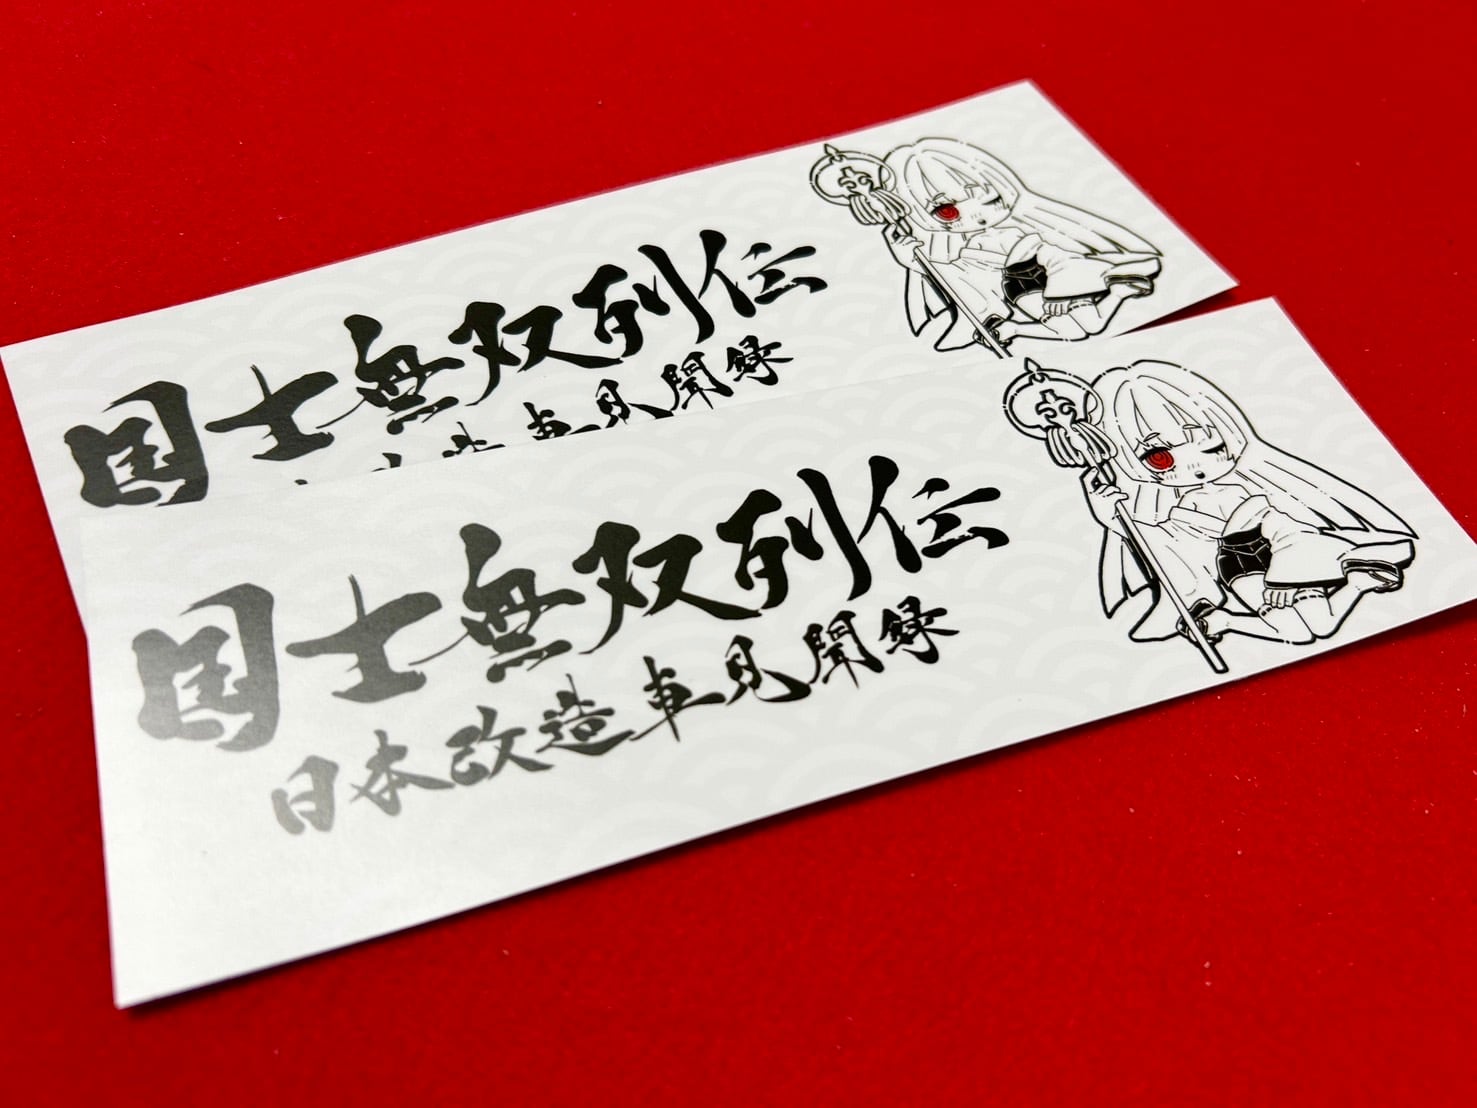 国士無双列伝
造車見聞録
国士無双列伝
日本改造車見聞録